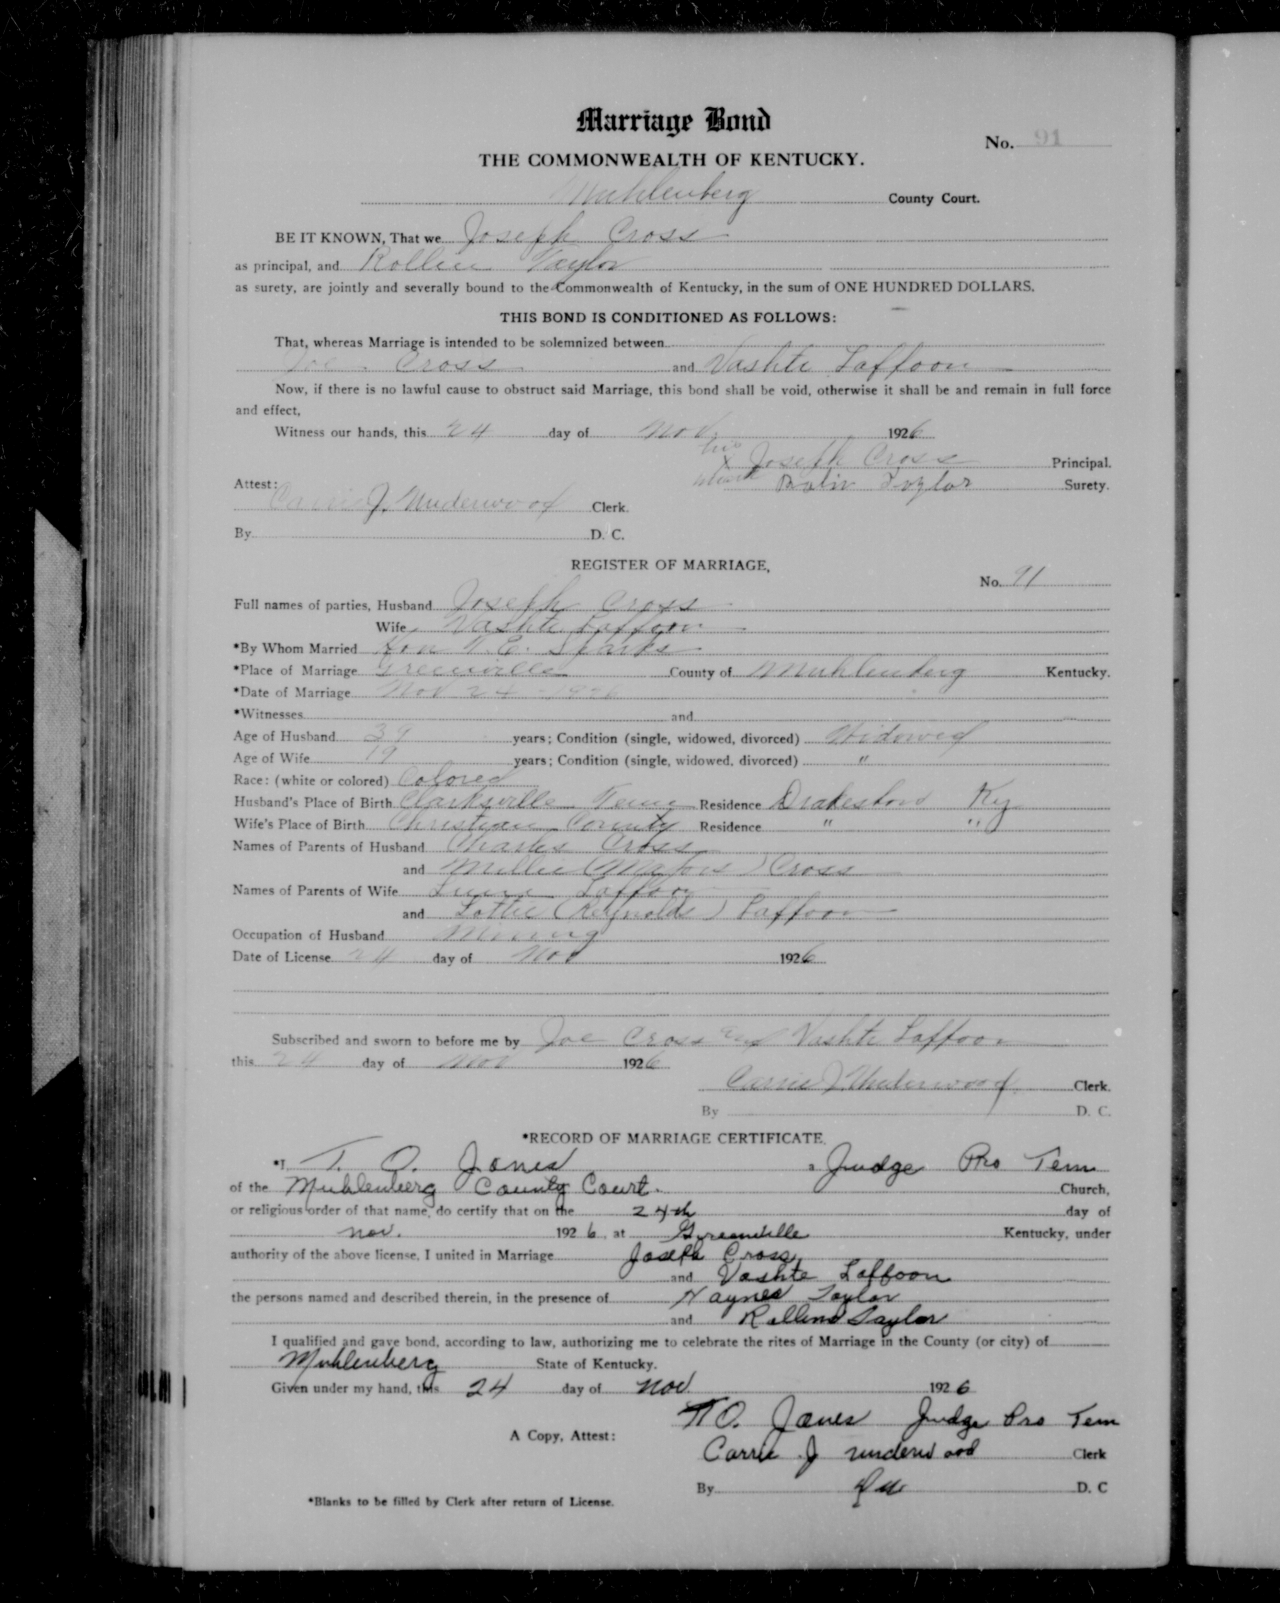 Marriage Bond
No. 91
THE COMMONWEALTH OF KENTUCKY.
Muhlenberg County Court.
BE IT KNOWN, That we Joseph Cross
as principal, and Rollin Taylor
as surety, are jointly and severally bound to the Commonwealth of Kentucky, in the sum of ONE HUNDRED DOLLARS.
THIS BOND IS CONDITIONED AS FOLLOWS:
That, whereas Marriage is intended to be solemnized between
Joe Cross and Vashte Laffoon
Now, if there is no lawful cause to obstruct said Marriage, this bond shall be void, otherwise it shall be and remain in full force
and effect,
Witness our hands, this 24 day of Nov 1926
his
x Joseph Cross Principal.
mark
Taylor Surety.
Attest:
Carrie J. Underwood Clerk.
By D. C.
REGISTER OF MARRIAGE,
No. 91
Full names of parties, Husband Joseph Cross
Wife Vashte Laffoon
*By Whom Married Hon T. E. Sparks
*Place of Marriage Greenville County of Muhlenberg Kentucky.
*Date of Marriage Nov 24 - 1926
*Witnesses and
Age of Husband 39 years; Condition (single, widowed, divorced) Widowed
Age of Wife 19 years; Condition (single, widowed, divorced) "
Race: (white or colored) Colored
Husband's Place of Birth Clarksville Tenn Residence Drakesboro Ky
Wife's Place of Birth Christian County Residence " "
Names of Parents of Husband Charles Cross
and Millie (Majors) Cross
Names of Parents of Wife Laffoon
and Lottie (Reynolds) Laffoon
Occupation of Husband Mining
Date of License 24 day of Nov 1926
Subscribed and sworn to before me by Joe Cross and Vashte Laffoon
this 24 day of Nov 1926
Carrie J. Underwood Clerk.
By D. C.
*RECORD OF MARRIAGE CERTIFICATE.
*I T. O. Jones a Judge Pro Tem
of the Muhlenberg County Court. Church,
or religious order of that name, do certify that on the 24th day of
Nov. 1926, at Greenville Kentucky, under
authority of the above license, I united in Marriage Joseph Cross
and Vashte Laffoon
the persons named and described therein, in the presence of Haynes Taylor
and Rollins Taylor
I qualified and gave bond, according to law, authorizing me to celebrate the rites of Marriage in the County (or city) of
Muhlenberg State of Kentucky.
Given under my hand, this 24 day of Nov 1926
T.O. Jones Judge Pro Tem
A Copy, Attest:
Carrie J Underwood Clerk
By D. C
*Blanks to be filled by Clerk after return of License.